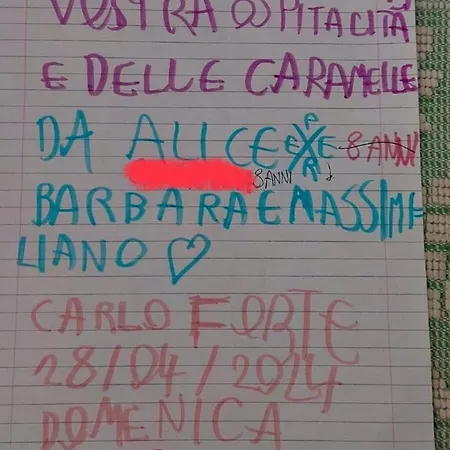 VOSTRA OSPITALITÀ
E DELLE CARAMELLE
DA ALICE E PER 8 ANNI
8 ANNI
BARBARA E MASSIMI
LIANO
CARLO FORTE
28/04/2024
DOMENICA